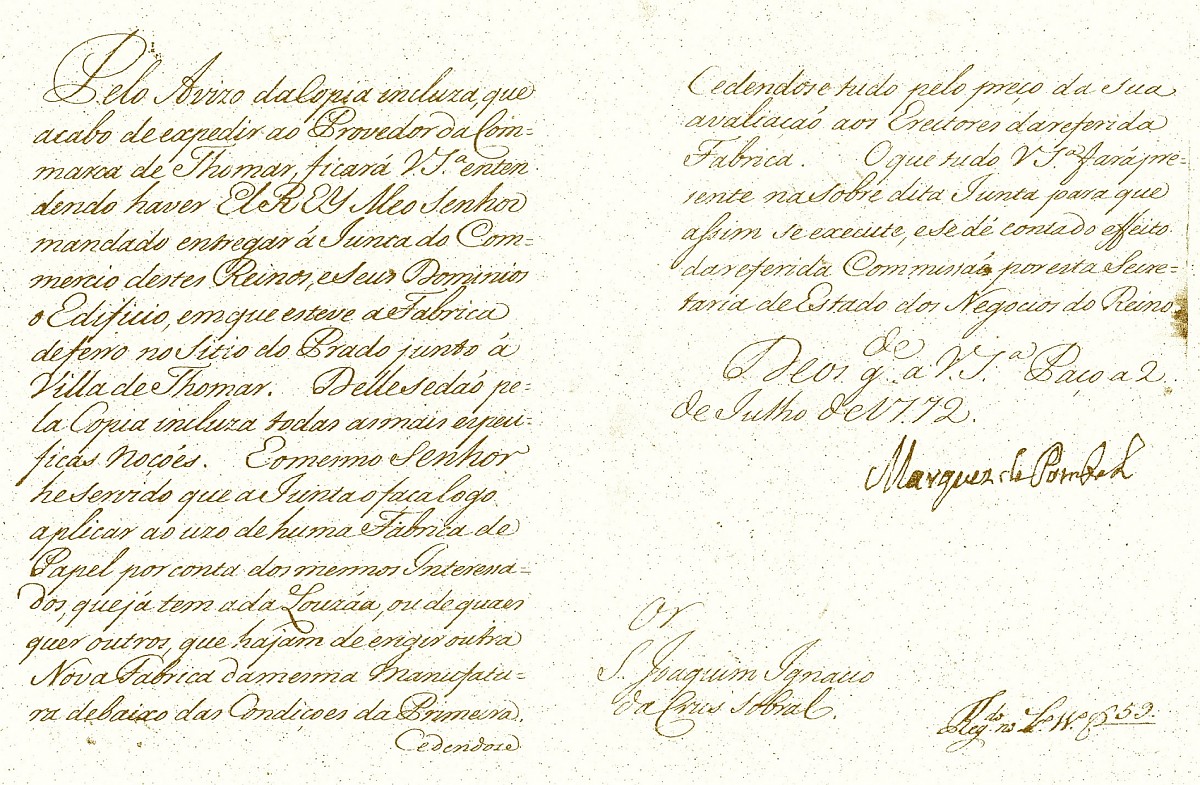 Pelo Avizo da Copia incluza, que
acabo de expedir ao Provedor da Com=
marca de Thomar, ficará V.S.ª enten
dendo haver El REY Meo Senhor
mandado entregar á Junta do Com=
mercio destes Reinos, e seus Dominios
o Edificio, em que esteve a Fabrica
de ferro no Sitio do Prado junto á
Villa de Thomar. Delle se daõ pe=
la Copia incluza todas as mais especi=
ficas noçoẽs. E o mesmo Senhor
he servido que a Junta o faça logo
aplicar ao uzo de huma Fabrica de
Papel por conta dos mesmos Interesa=
dos, que já tem a da Louzáa, ou de quaes
quer outros, que hajam de erigir outra
Nova Fabrica da mesma Manufatu=
ra debaixo das Condiçoes da Primeira.
Cedendose
Cedendose tudo pelo preço da sua
avaliacaõ aos Erectores da referida
Fabrica. O que tudo V.S.ª fará pre=
sente na sobre dita Junta para que
assim se execute, e se dé conta do effeito
da referida Commissaõ por esta Secre=
taria de Estado dos Negocios do Reino.
Deos g.de a V.S.ª Paço a 2
de Julho de 1772.
Marquez de Pombal
Sr
S. Joaquim Ignacio
da Crus Sobral.
Reg.do no L.o 53.